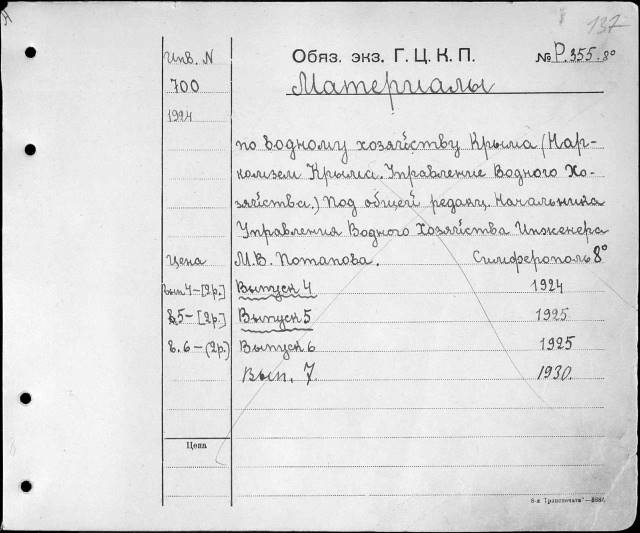 137
Инв. N
Обяз. экз. Г. Ц. К. П.
№ Р.355.8°
700
Материалы
1924
по водному хозяйству Крыма (Нар-
комзем Крыма. Управление Водного Хо-
зяйства.) Под общей редакц. Начальника
Управления Водного Хозяйства Инженера
Цена
М.В. Потапова. Симферополь 8°
вып 4 – [2р.] Выпуск 4 1924
в.5 – [2р.] Выпуск 5 1925
в. 6 – (2р.) Выпуск 6 1925
Вып. 7 1930.
Цена
8-я Транспечати"